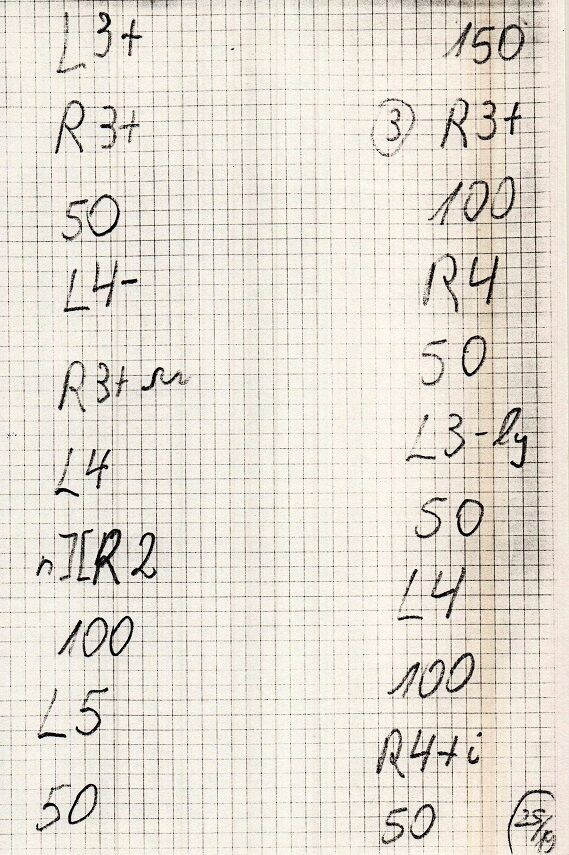 L3+
R3+
50
L4-
R3+
L4
R2
100
L5
50
150
3 R3+
100
R4
50
L3-ly
50
L4
100
R4+i
50
25/19